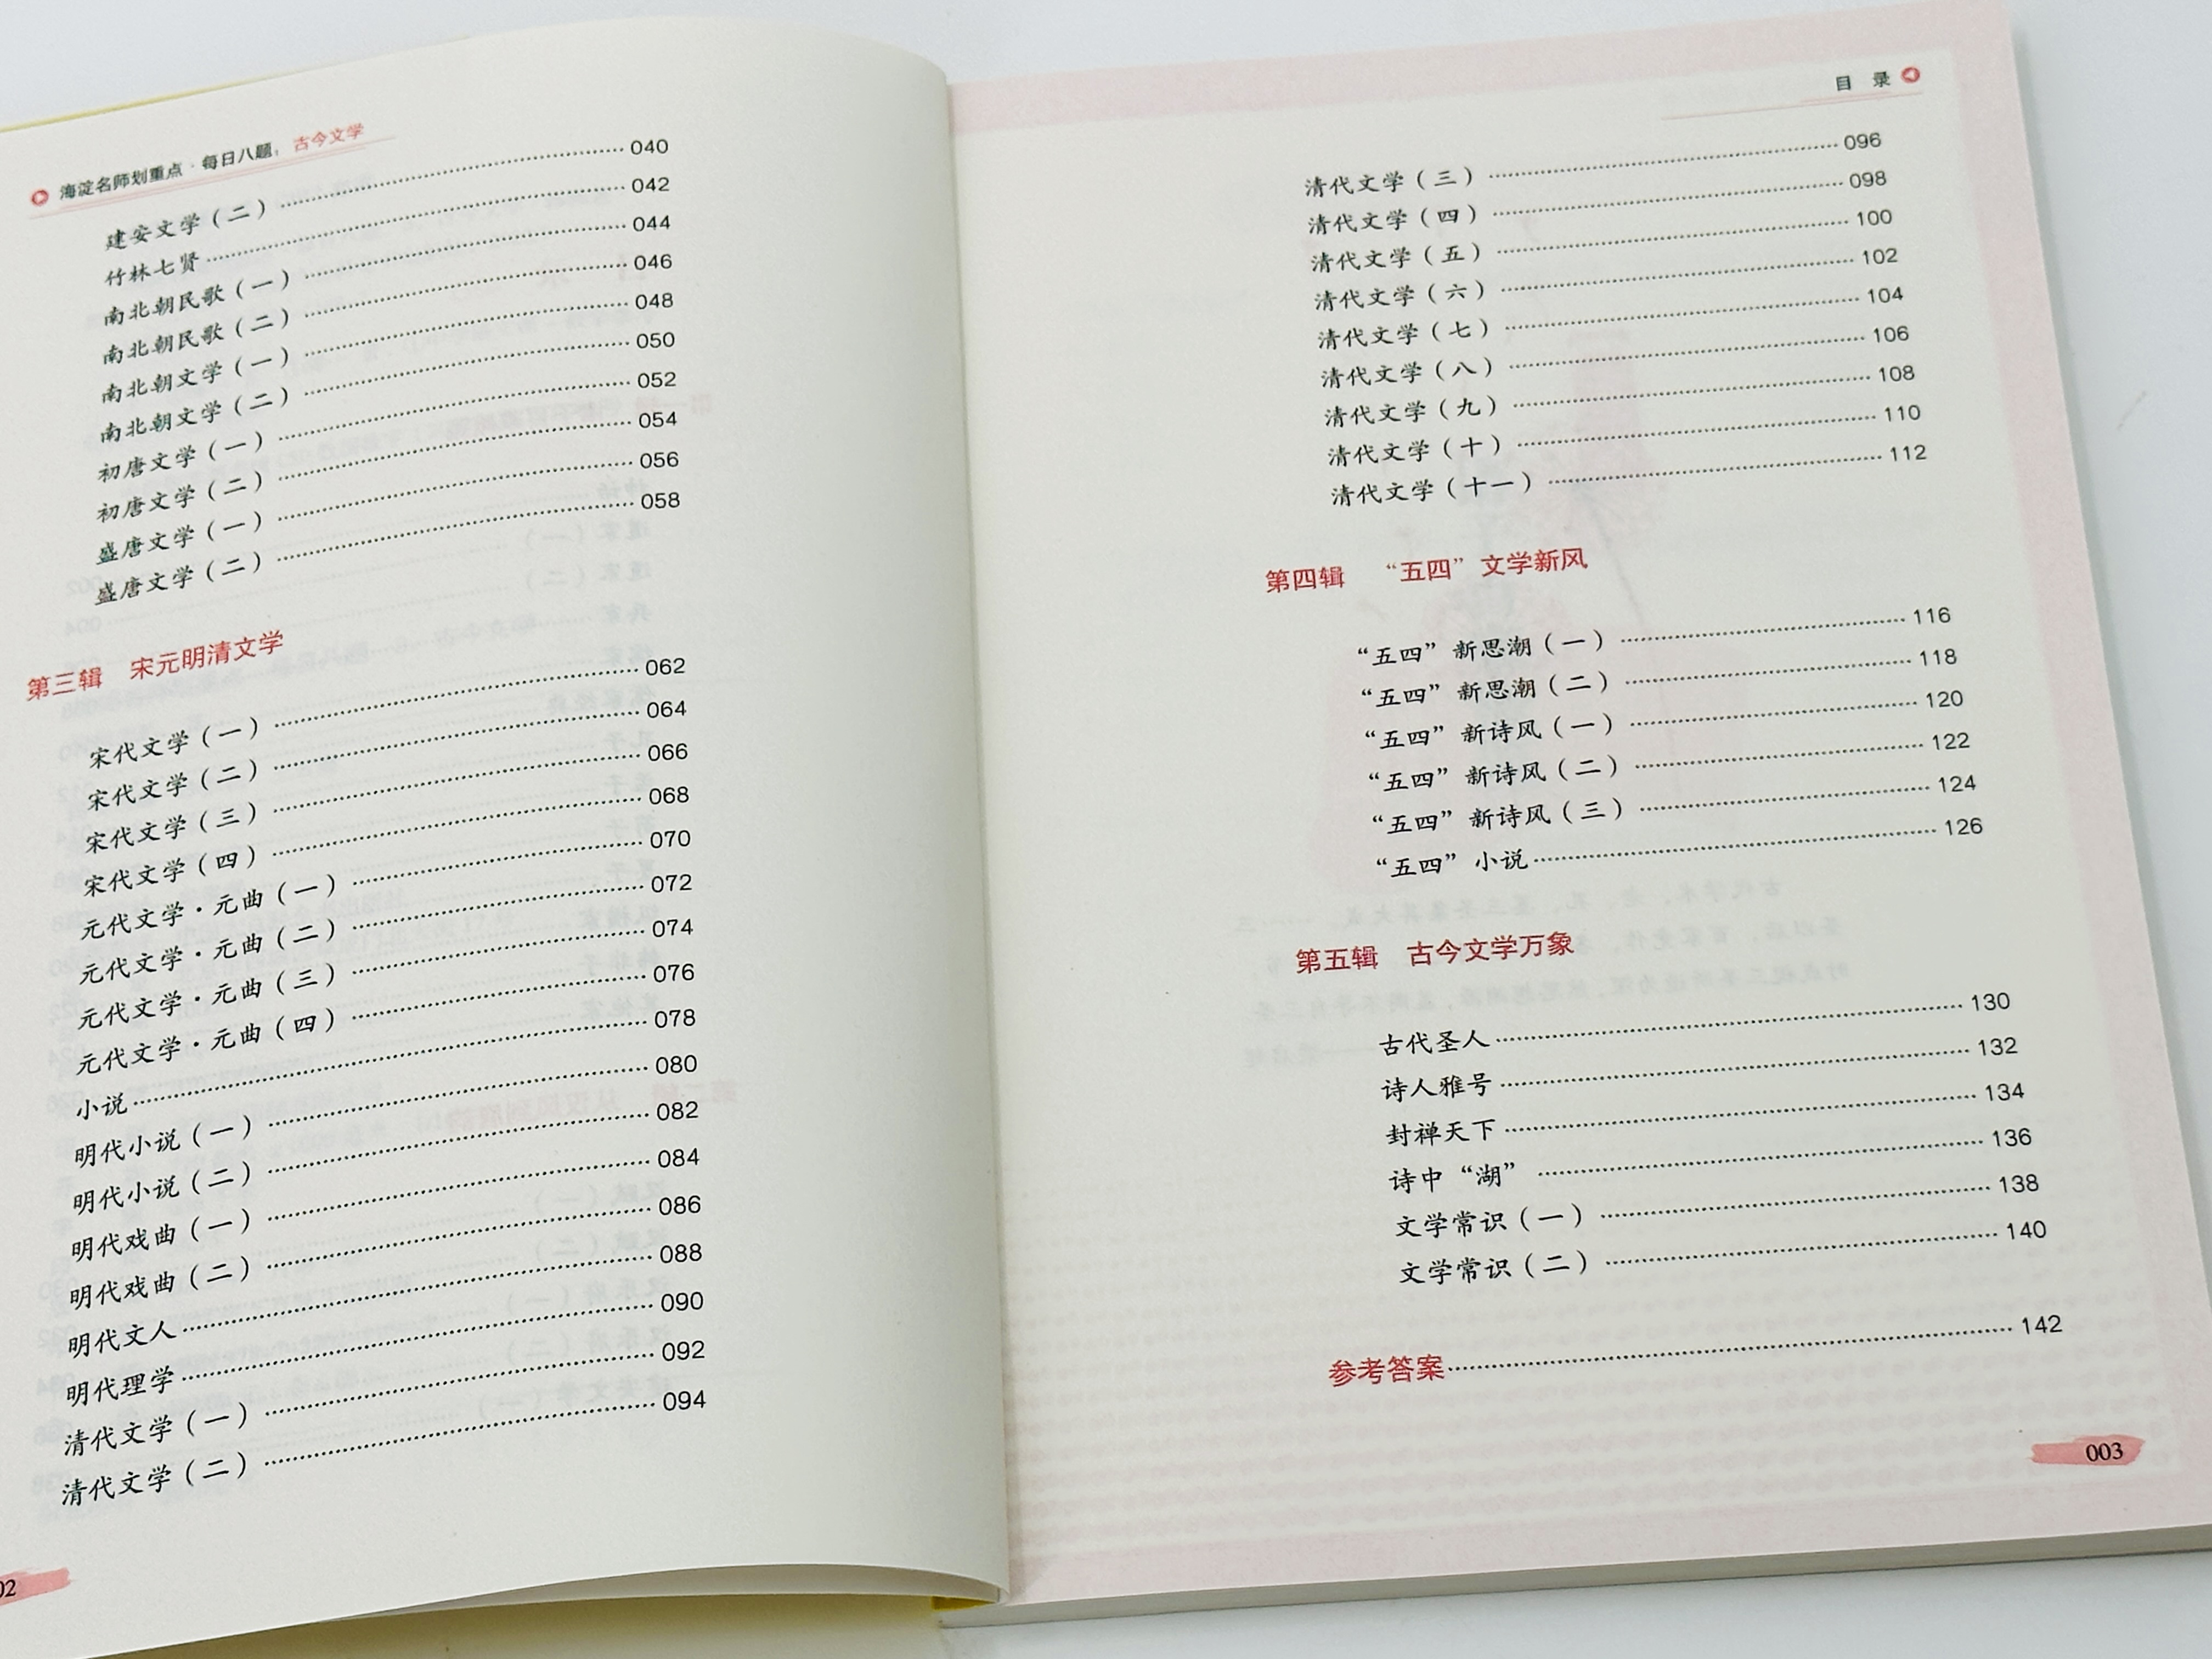 海淀名师划重点·每日八题,古今文学
建安文学（二）……040
竹林七贤……042
南北朝民歌（一）……044
南北朝民歌（二）……046
南北朝文学（一）……048
南北朝文学（二）……050
初唐文学（一）……052
初唐文学（二）……054
盛唐文学（一）……056
盛唐文学（二）……058
第三辑 宋元明清文学
宋代文学（一）……062
宋代文学（二）……064
宋代文学（三）……066
宋代文学（四）……068
元代文学·元曲（一）……070
元代文学·元曲（二）……072
元代文学·元曲（三）……074
元代文学·元曲（四）……076
小说……078
明代小说（一）……080
明代小说（二）……082
明代戏曲（一）……084
明代戏曲（二）……086
明代文人……088
明代理学……090
清代文学（一）……092
清代文学（二）……094
02
目 录
清代文学（三）……096
清代文学（四）……098
清代文学（五）……100
清代文学（六）……102
清代文学（七）……104
清代文学（八）……106
清代文学（九）……108
清代文学（十）……110
清代文学（十一）……112
第四辑 “五四”文学新风
“五四”新思潮（一）……116
“五四”新思潮（二）……118
“五四”新诗风（一）……120
“五四”新诗风（二）……122
“五四”新诗风（三）……124
“五四”小说……126
第五辑 古今文学万象
古代圣人……130
诗人雅号……132
封禅天下……134
诗中“湖”……136
文学常识（一）……138
文学常识（二）……140
参考答案……142
003